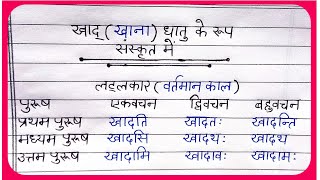 खाद् (खाना) धातु के रूप
संस्कृत में
लट्लकार (वर्तमान काल)
पुरूष एकवचन द्विवचन बहुवचन
प्रथम पुरूष खादति खादतः खादन्ति
मध्यम पुरूष खादसि खादथः खादथ
उत्तम पुरूष खादामि खादावः खादामः